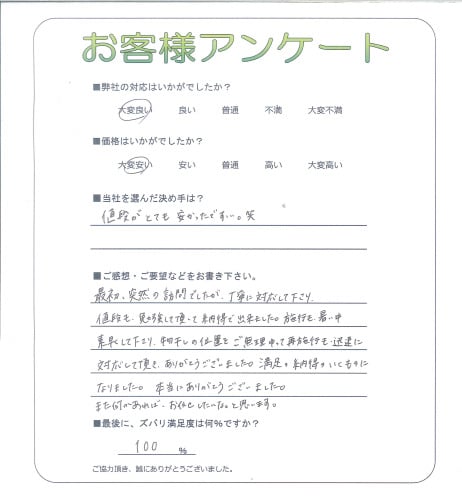 お客様アンケート
■弊社の対応はいかがでしたか？
大変良い 良い 普通 不満 大変不満
■価格はいかがでしたか？
大変安い 安い 普通 高い 大変高い
■当社を選んだ決め手は？
値段がとても安かったですぃ。笑
■ご感想・ご要望などをお書き下さい。
最初、突然の訪問でしたが、丁寧に対応して下り、
値段も、頂って納得で出来ました。施行も、暑い中
素早くして下り、物干しの位置をご無理申って再施行も迅速に
対応して頂き、ありがとうございました。満足・納得のいくものに
なりました。本当にありがとうございました。
また何かあれば、お任せしたいな。と思います。
■最後に、ズバリ満足度は何%ですか？
100 %
ご協力頂き、誠にありがとうございました。